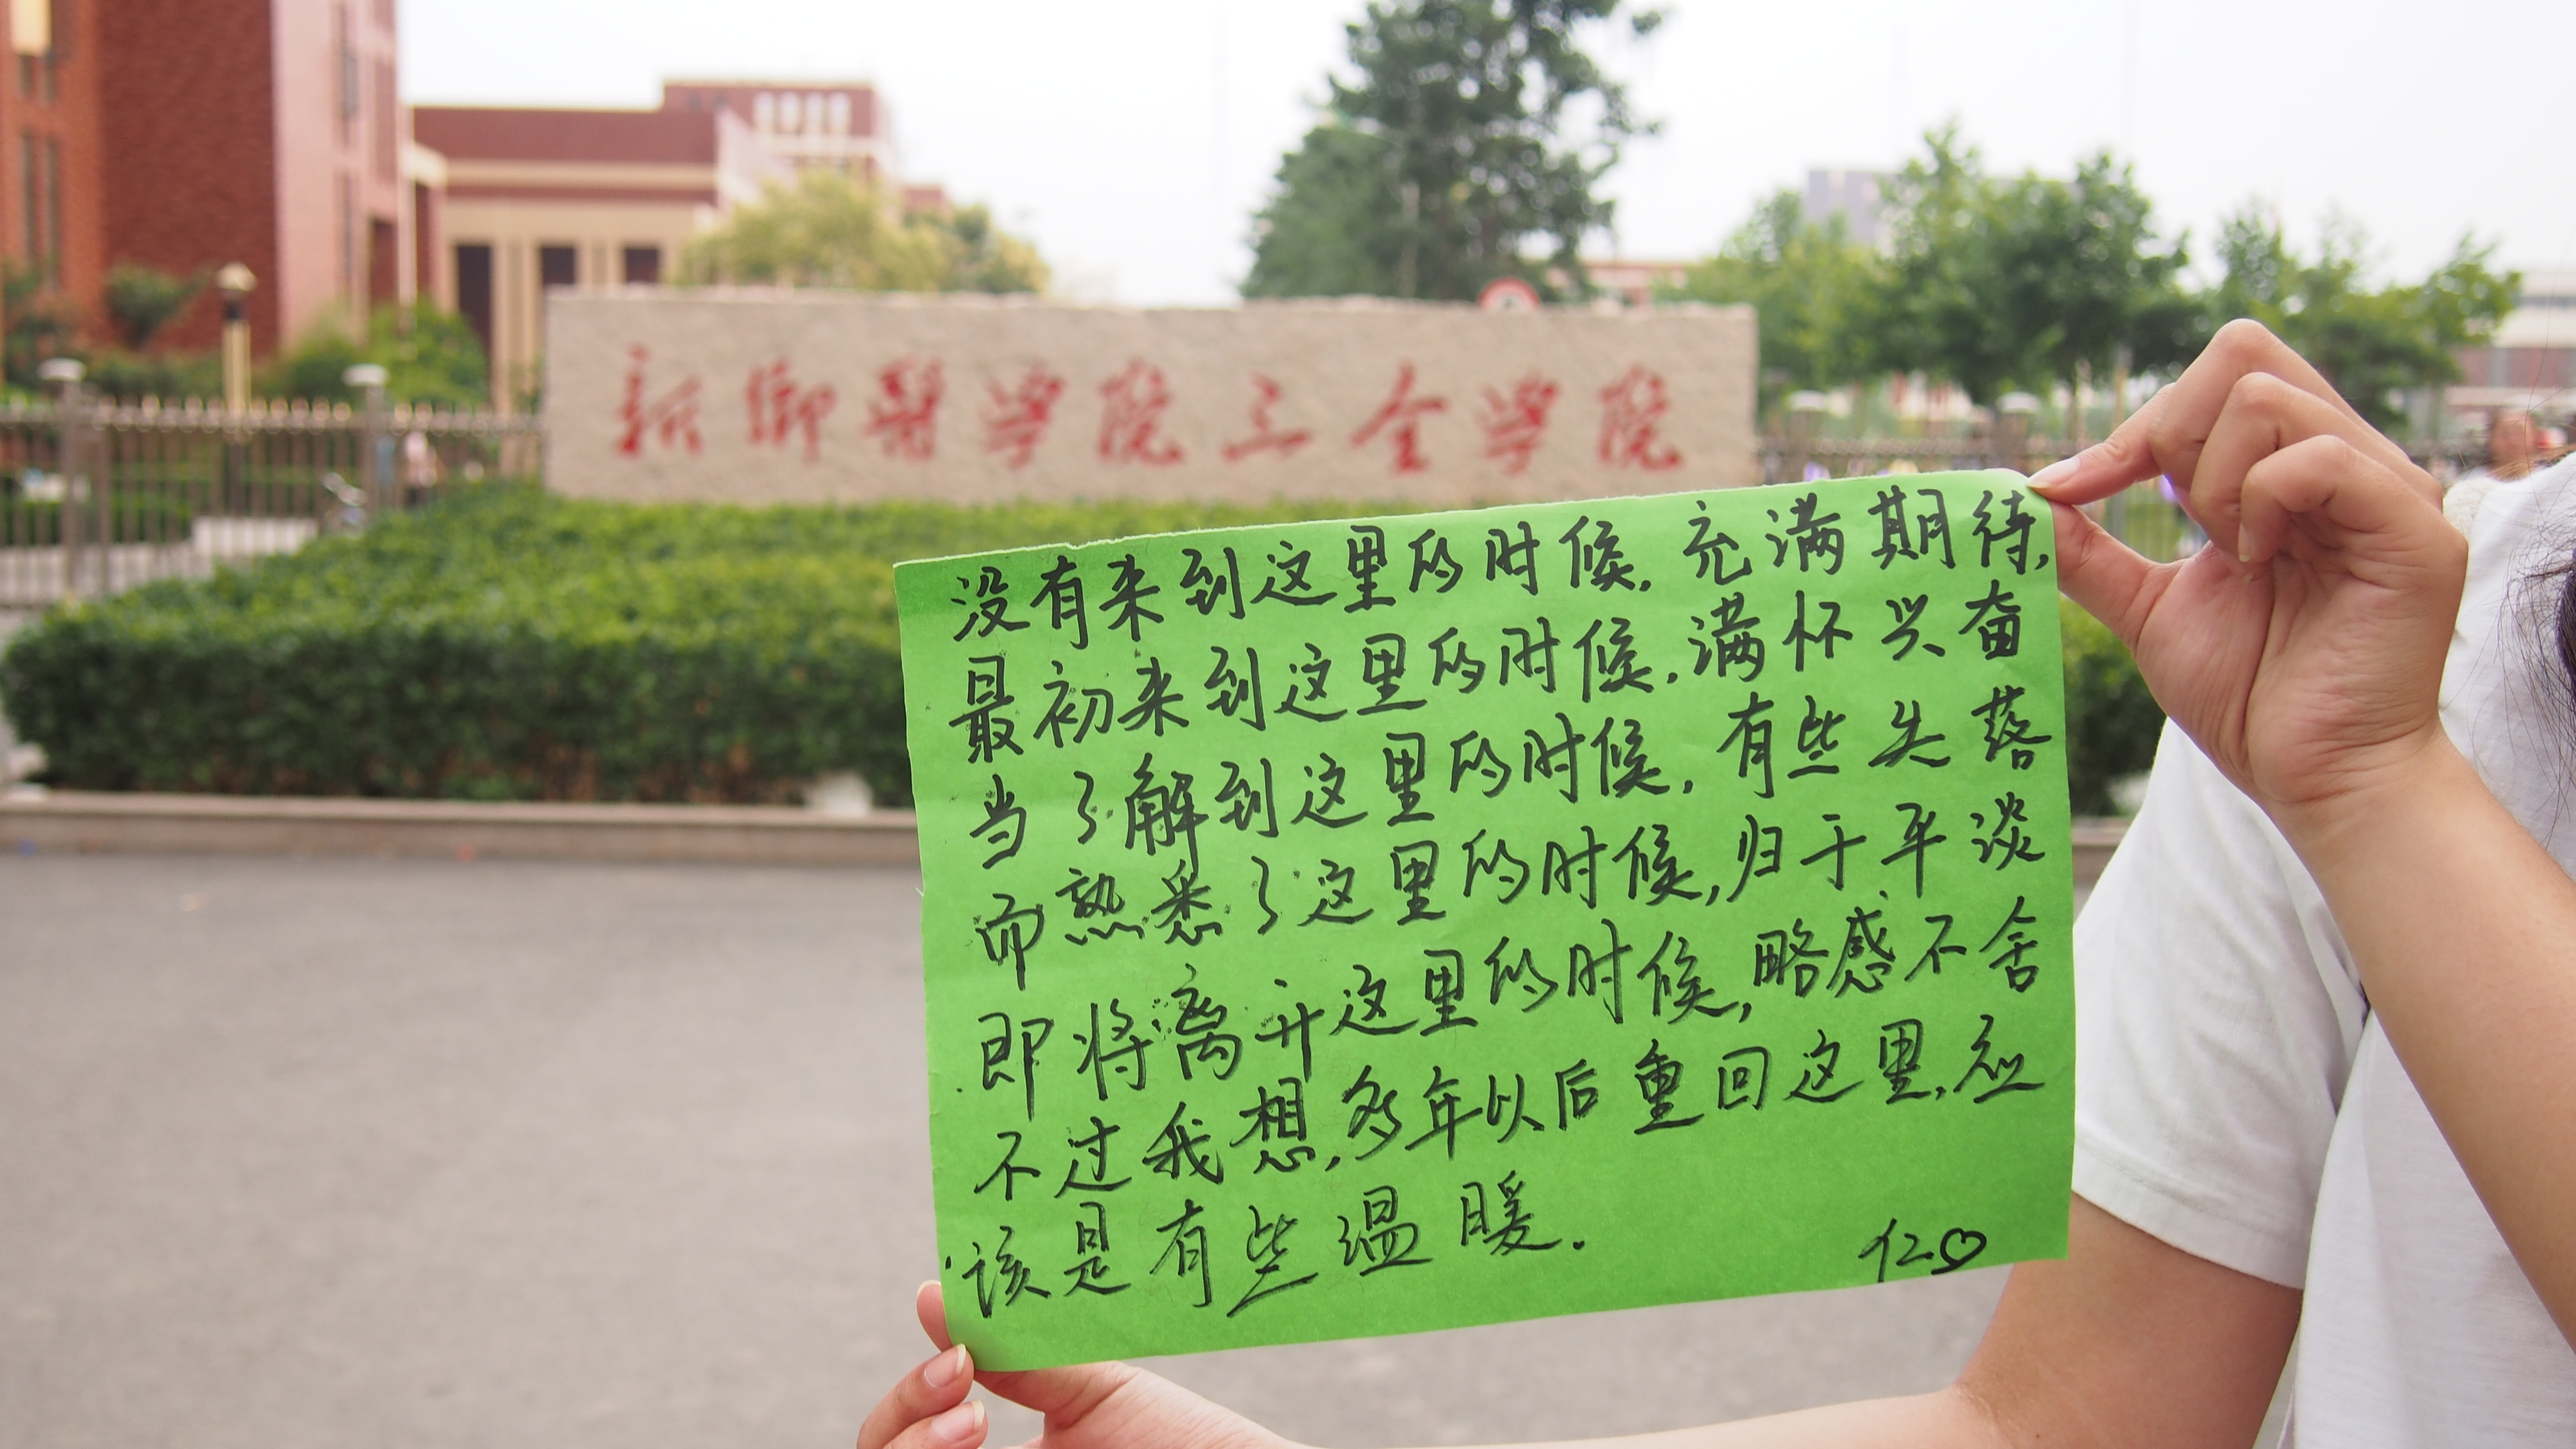 新鄉醫學院三全學院
没有来到这里的时候，充满期待，
最初来到这里的时候，满怀兴奋
当了解到这里的时候，有些失落
而熟悉了这里的时候，归于平淡
即将离开这里的时候，略感不舍
不过我想，多年以后重回这里，应
该是有些温暖.
仁♡